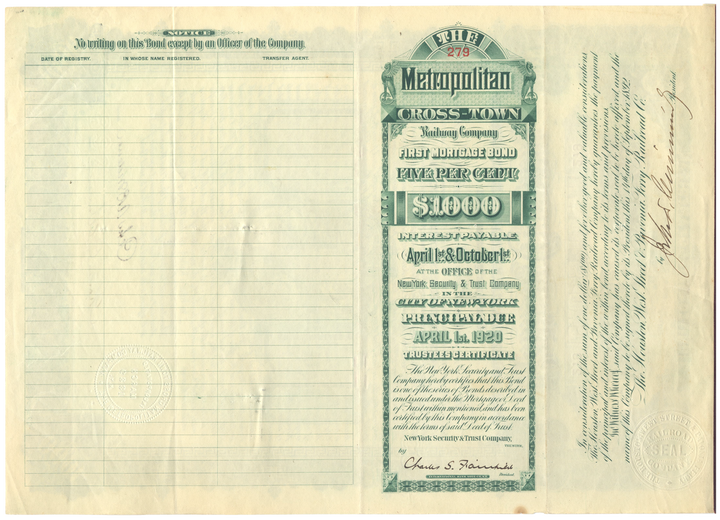 NOTICE
No writing on this Bond except by an Officer of the Company.
DATE OF REGISTRY. IN WHOSE NAME REGISTERED. TRANSFER AGENT.
THE
279
Metropolitan
CROSS-TOWN
Railway Company
FIRST MORTGAGE BOND
FIVE PER CENT
$1000
INTEREST PAYABLE
April 1st & October 1st
AT THE OFFICE OF THE
New York, Security & Trust Company
IN THE
CITY OF NEW YORK
PRINCIPAL DUE
APRIL 1st. 1920
TRUSTEES CERTIFICATE
The New York Security and Trust
Company hereby certifies that this Bond
is one of the series of Bonds described in
and issued under the Mortgage or Deed
of Trust within mentioned, and has been
certified by this Company in accordance
with the terms of said Deed of Trust
New York Security & Trust Company,
TRUSTEE.
by
Charles S. Fairchild
President
In consideration of the sum of one dollar ($1.00) and for other good and valuable considerations
The Houston West Street and Pavonia Ferry Railroad Company hereby guarantees the payment
of the principal and interest of the within bond according to its terms and conditions.
In Witness Whereof said Company has caused its corporate seal to be hereto affixed and the
name of this Company to be signed thereto by its President this day of September 1892
The Houston West Street & Pavonia Ferry Railroad Co.
by
President
SEAL